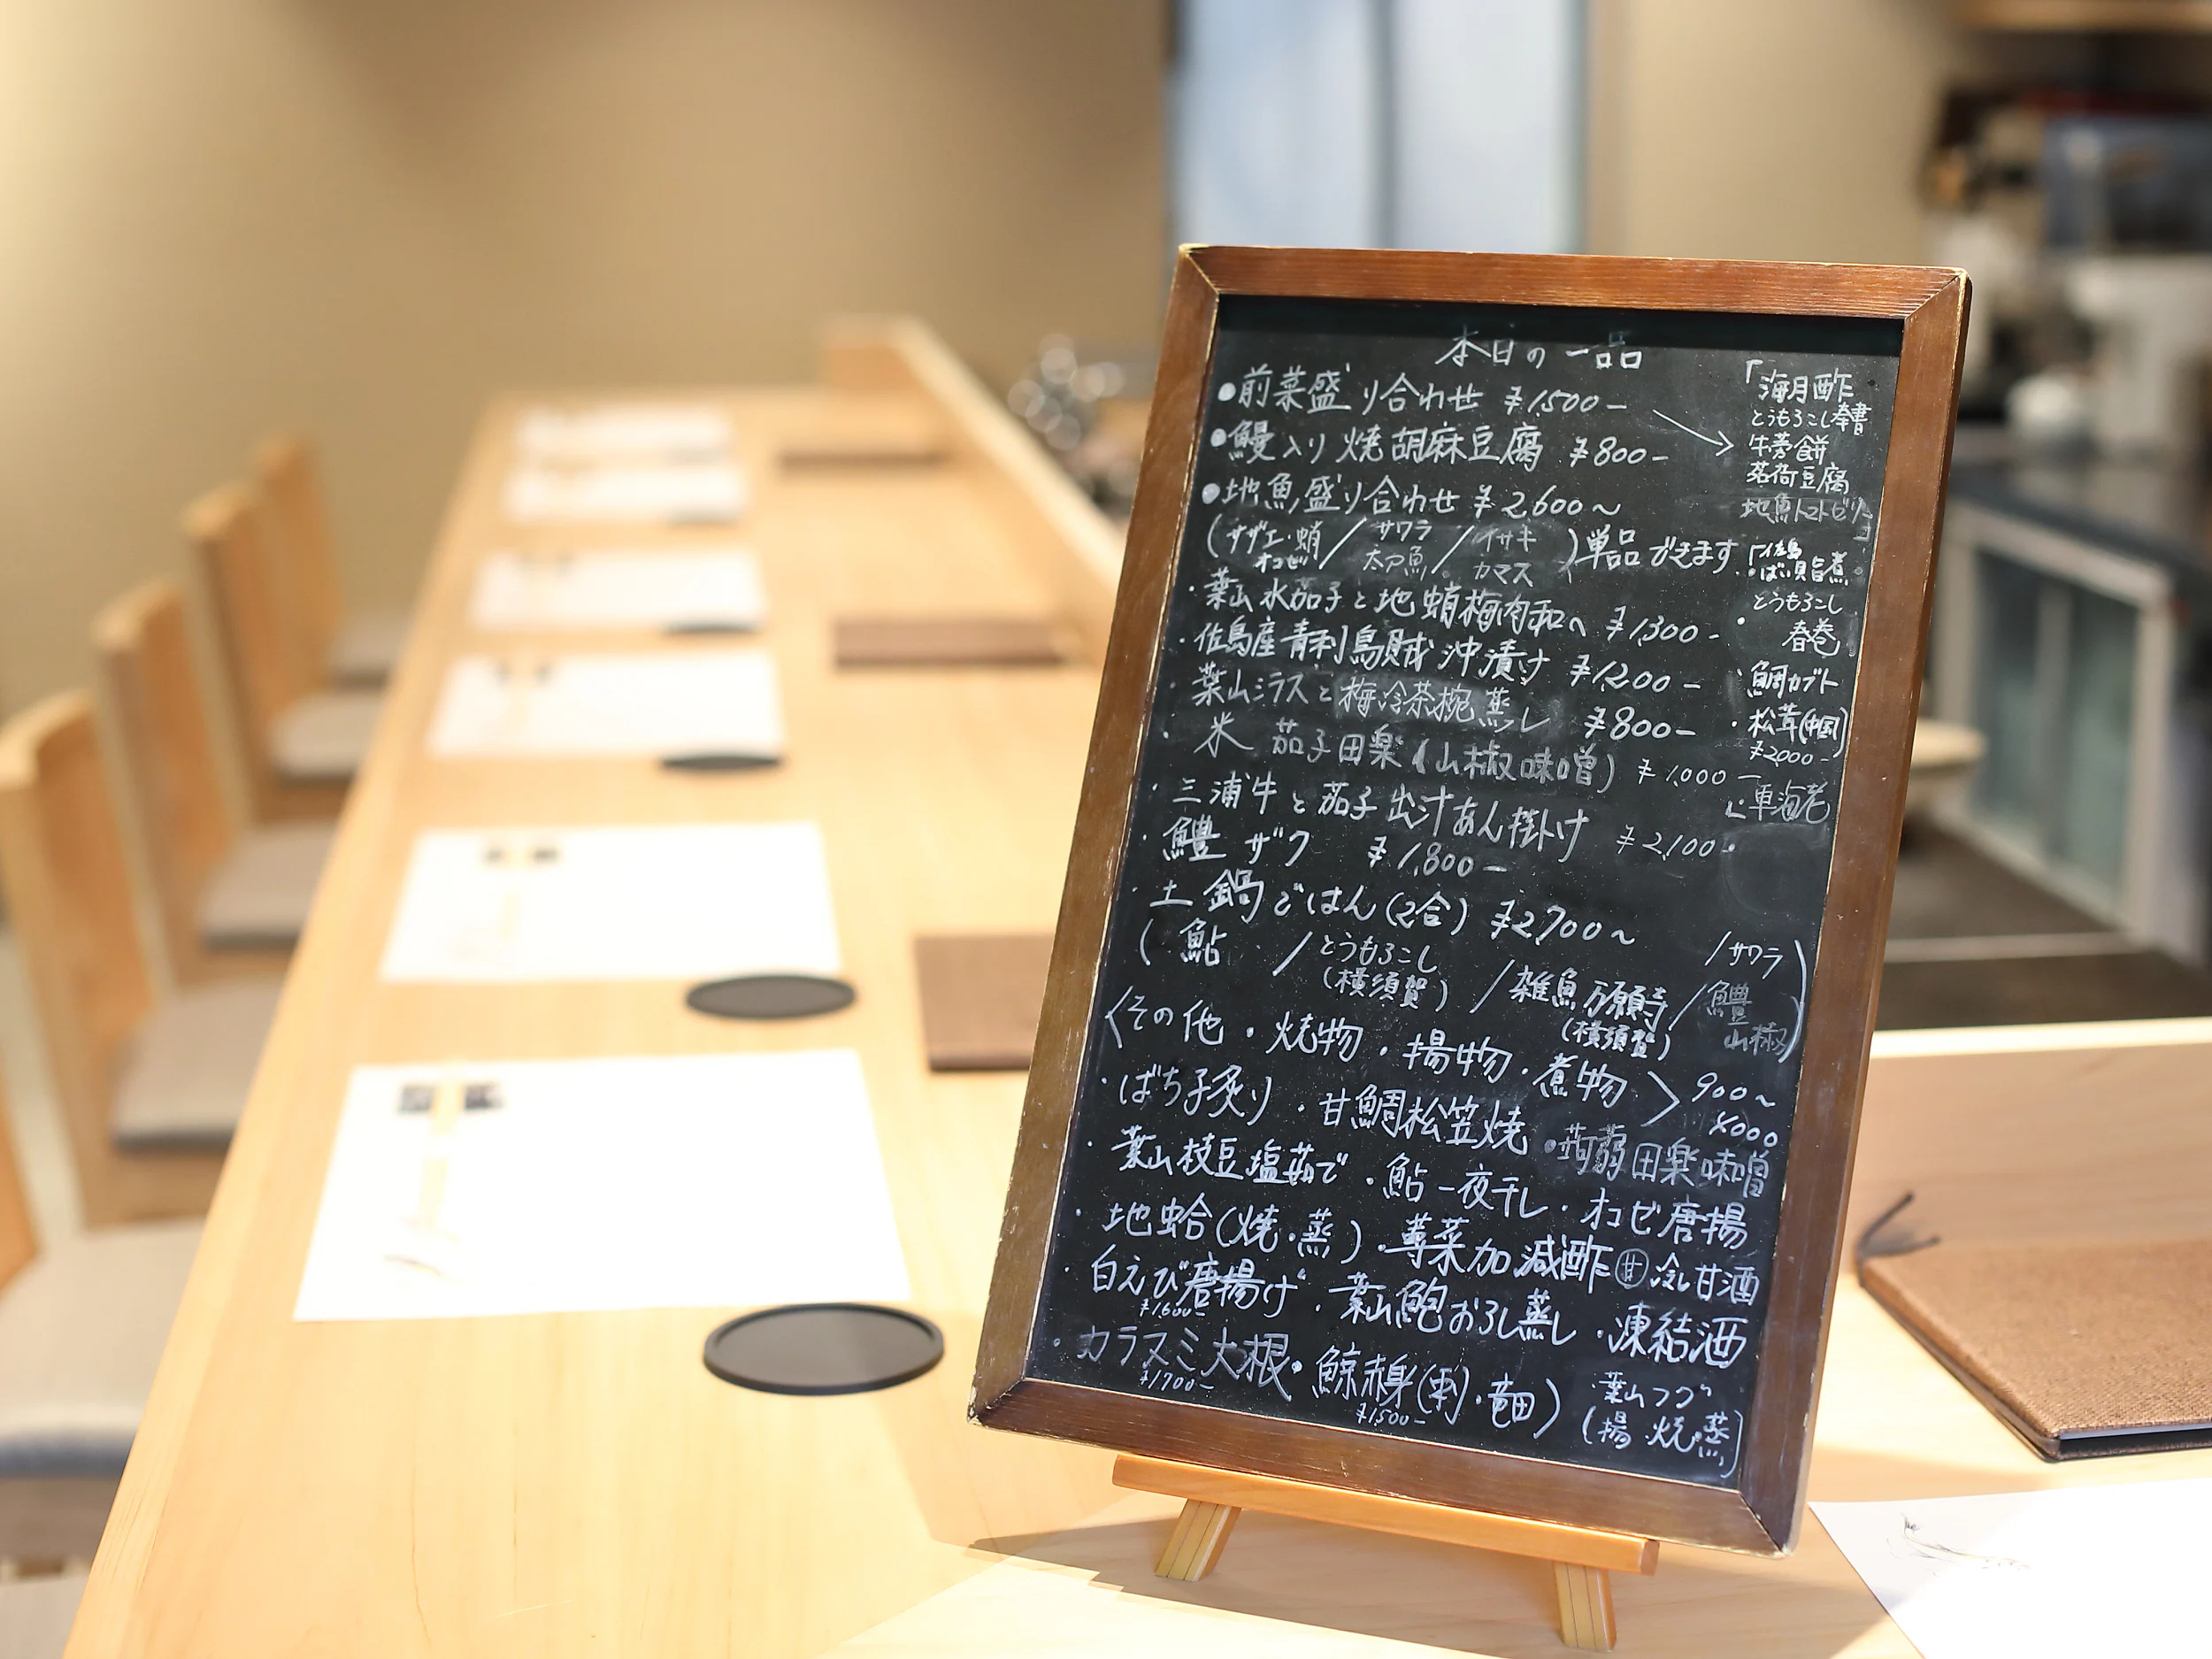 本日の一品
●前菜盛り合わせ ¥1,500-
●鰻入り焼胡麻豆腐 ¥800-
●地魚盛り合わせ ¥2,600〜
(サザエ・蛸/サワラ/イサキ
オコゼ/太刀魚/カマス)単品できます
・葉山水茄子と地蛸梅肉和へ ¥1,300-
・佐島産青利烏賊沖漬け ¥1,200-
・葉山シラスと梅冷茶椀蒸し ¥800-
・米茄子田楽(山椒味噌) ¥1,000-
・三浦牛と茄子出汁あん掛け ¥2,100-
・鱧ザク ¥1,800-
・土鍋ごはん(2合) ¥2,700〜
(鮎/とうもろこし(横須賀)/雑魚万願寺(横須賀)/サワラ/鱧山椒)
〈その他・焼物・揚物・煮物〉900〜
4000
・ばち子炙り・甘鯛松笠焼・蒟蒻田楽味噌
・葉山枝豆塩茹で・鮎一夜干し・オコゼ唐揚
・地蛤(焼・蒸)・蓴菜加減酢 甘 冷し甘酒
・白えび唐揚げ・葉山鮑おろし蒸し・凍結酒
¥1,600-
・カラスミ大根・鯨赤身(刺・竜田)
¥1,700- ¥1,500-
葉山フグ
(揚 焼 蒸)
「海月酢
とうもろこし奉書
牛蒡餅
茗荷豆腐
地魚トマトゼリー」
「佐島
ばい貝旨煮
・とうもろこし
春巻
・鯛カブト
・松茸(中国)
¥2000-
車海老